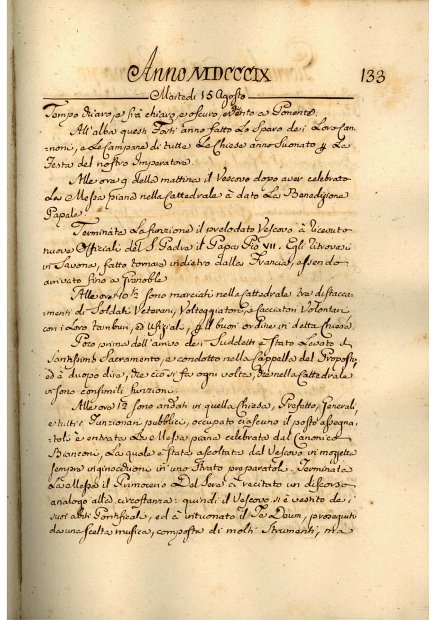 Anno MDCCCIX
133
Martedi 15 Agosto
Tempo chiaro, e fra chiaro, e oscuro, e vento a Ponente.
All'alba questi Forti anno fatto Lo Sparo dei Loro Can-
noni, e Le Campane di tutte Le Chiese anno Suonato La
Festa del nostro Imperatore.
Alle ore 9 della mattina il Vescovo dopo aver celebrato
La Messa piana nella Cattedrale à dato La Benedizione
Papale.
Terminata La funzione il prelodato Vescovo à ricevuto
nuove Officiali del S. Padre il Papa Pio VII. Egli ritrovasi
in Savona, fatto tornare indietro dalla Francia, essendo
arrivato fino a Grenoble.
Alle ore 10½ sono marciati nella Cattedrale distacca-
menti di Soldati Veterani, Volteggiatori, e Cacciatori Volontari
con i Loro tamburi, ed Uffiziali, il buon ordine in detta Chiesa.
Poco prima dell'arrivo dei Suddetti è stato Levato il
Santissimo Sacramento, e condotto nella Cappella del Proposto,
ed è duopo dire, che ciò si fa ogni volta, che nella Cattedrale
vi sono consimili funzioni.
Alle ore sono andati in quella Chiesa, Prefetto, Generali,
e tutti i Funzionari pubblici, occupato ciascuno il posto assegna-
toli è entrata La Messa piana celebrata dal Canonico
Bianconi, La quale è stata ascoltata dal Vescovo in mozzetta
sempre inginocchioni in uno Strato preparatoli. Terminata
La Messa il Primocerio Del Sere à recitato un discorso
analogo alla circostanza: quindi il Vescovo si è vestito de'
suoi abiti Pontificali, ed à intuonato il Te Deum, proseguito
da una scelta musica, composta di molti Strumenti, ma